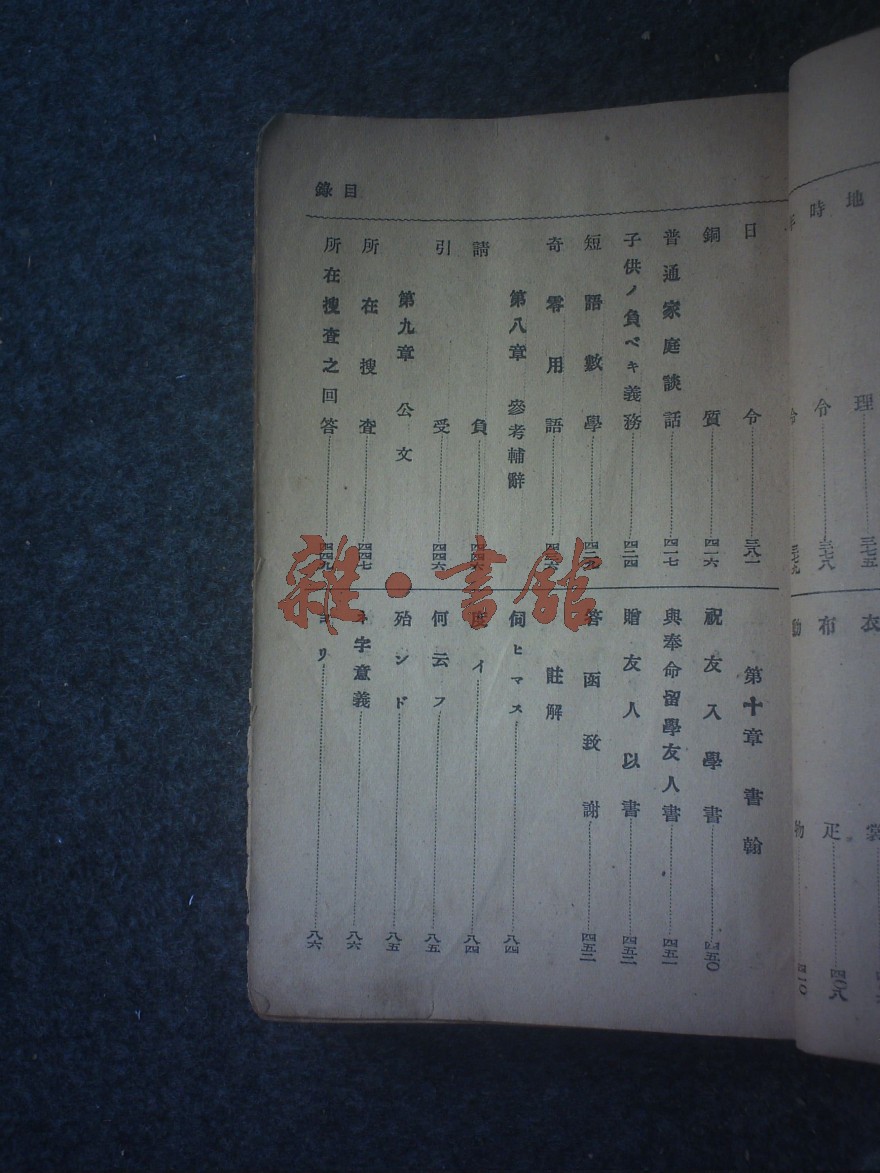 目錄
地理……三七五
時令……三七八
日令……三八一
銅質……四一六
普通家庭談話……四一七
子供ノ負ベキ義務……四二四
短語數學……四二九
奇零用語
第八章 參考輔辭
請負
引受……四四六
第九章 公文
所在搜査……四四七
所在搜査之回答……四四九
衣裳
布疋……四〇八
動物……四一〇
第十章 書翰
祝友入學書……四五〇
與奉命留學友人書……四五一
贈友人以書……四五二
答函致謝……四五二
註解
伺ヒマス……八四
度イ……八四
何云フ……八五
殆ンド……八五
字意義……八六
リ……八六
雜·書館